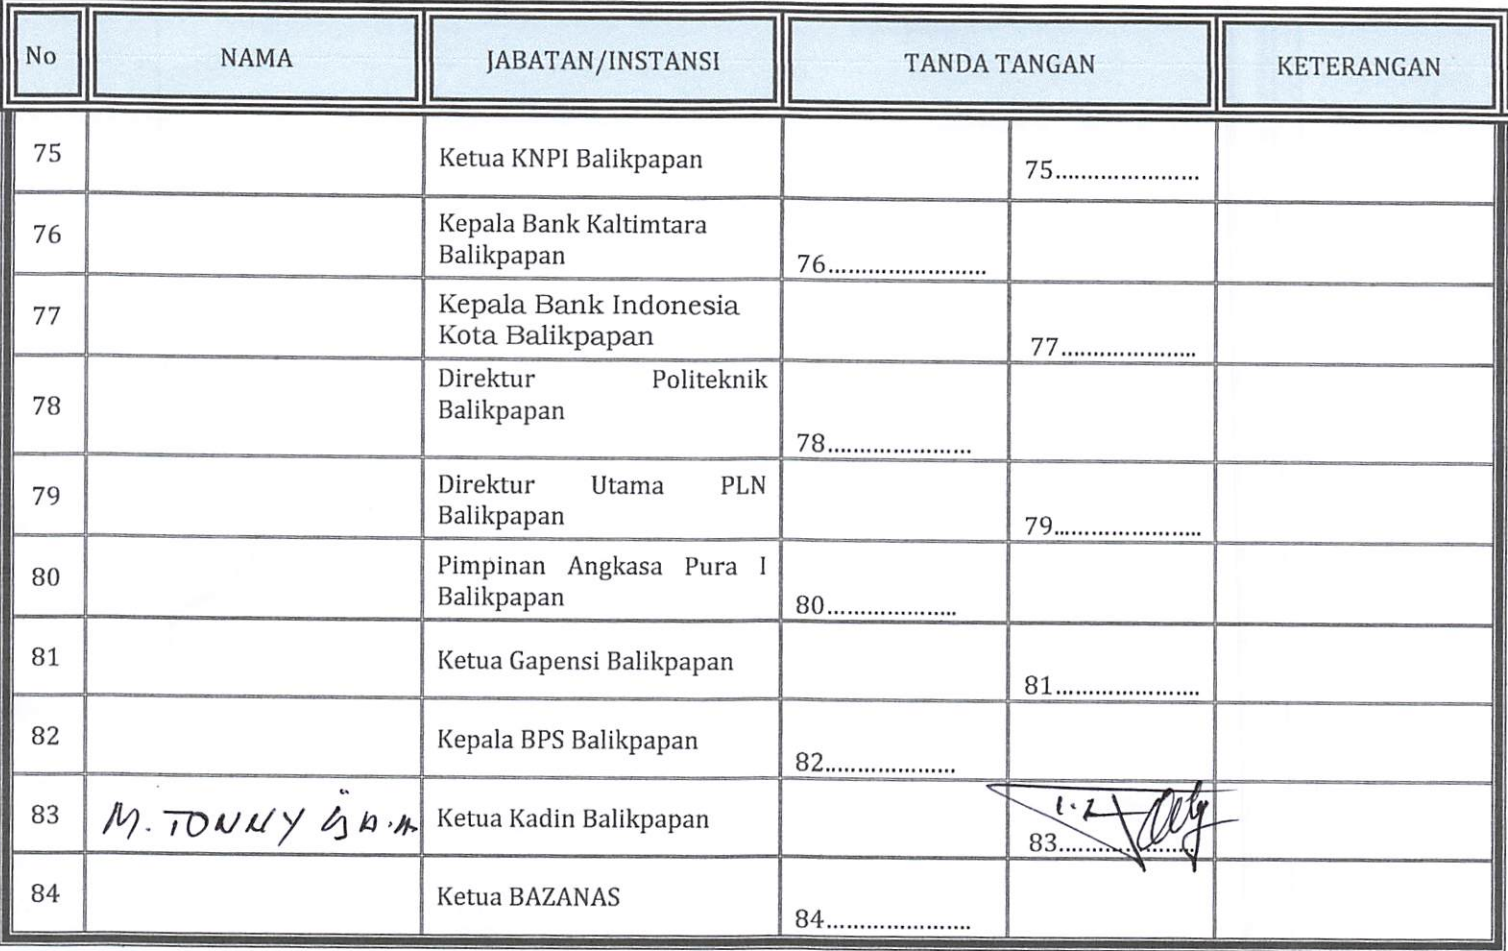 No NAMA JABATAN/INSTANSI TANDA TANGAN KETERANGAN
75 Ketua KNPI Balikpapan 75......................
76 Kepala Bank Kaltimtara
Balikpapan 76........................
77 Kepala Bank Indonesia
Kota Balikpapan 77.....................
78 Direktur Politeknik
Balikpapan 78......................
79 Direktur Utama PLN
Balikpapan 79.......................
80 Pimpinan Angkasa Pura I
Balikpapan 80....................
81 Ketua Gapensi Balikpapan 81......................
82 Kepala BPS Balikpapan 82....................
83 M. TONNY Ketua Kadin Balikpapan 83......................
84 Ketua BAZANAS 84......................